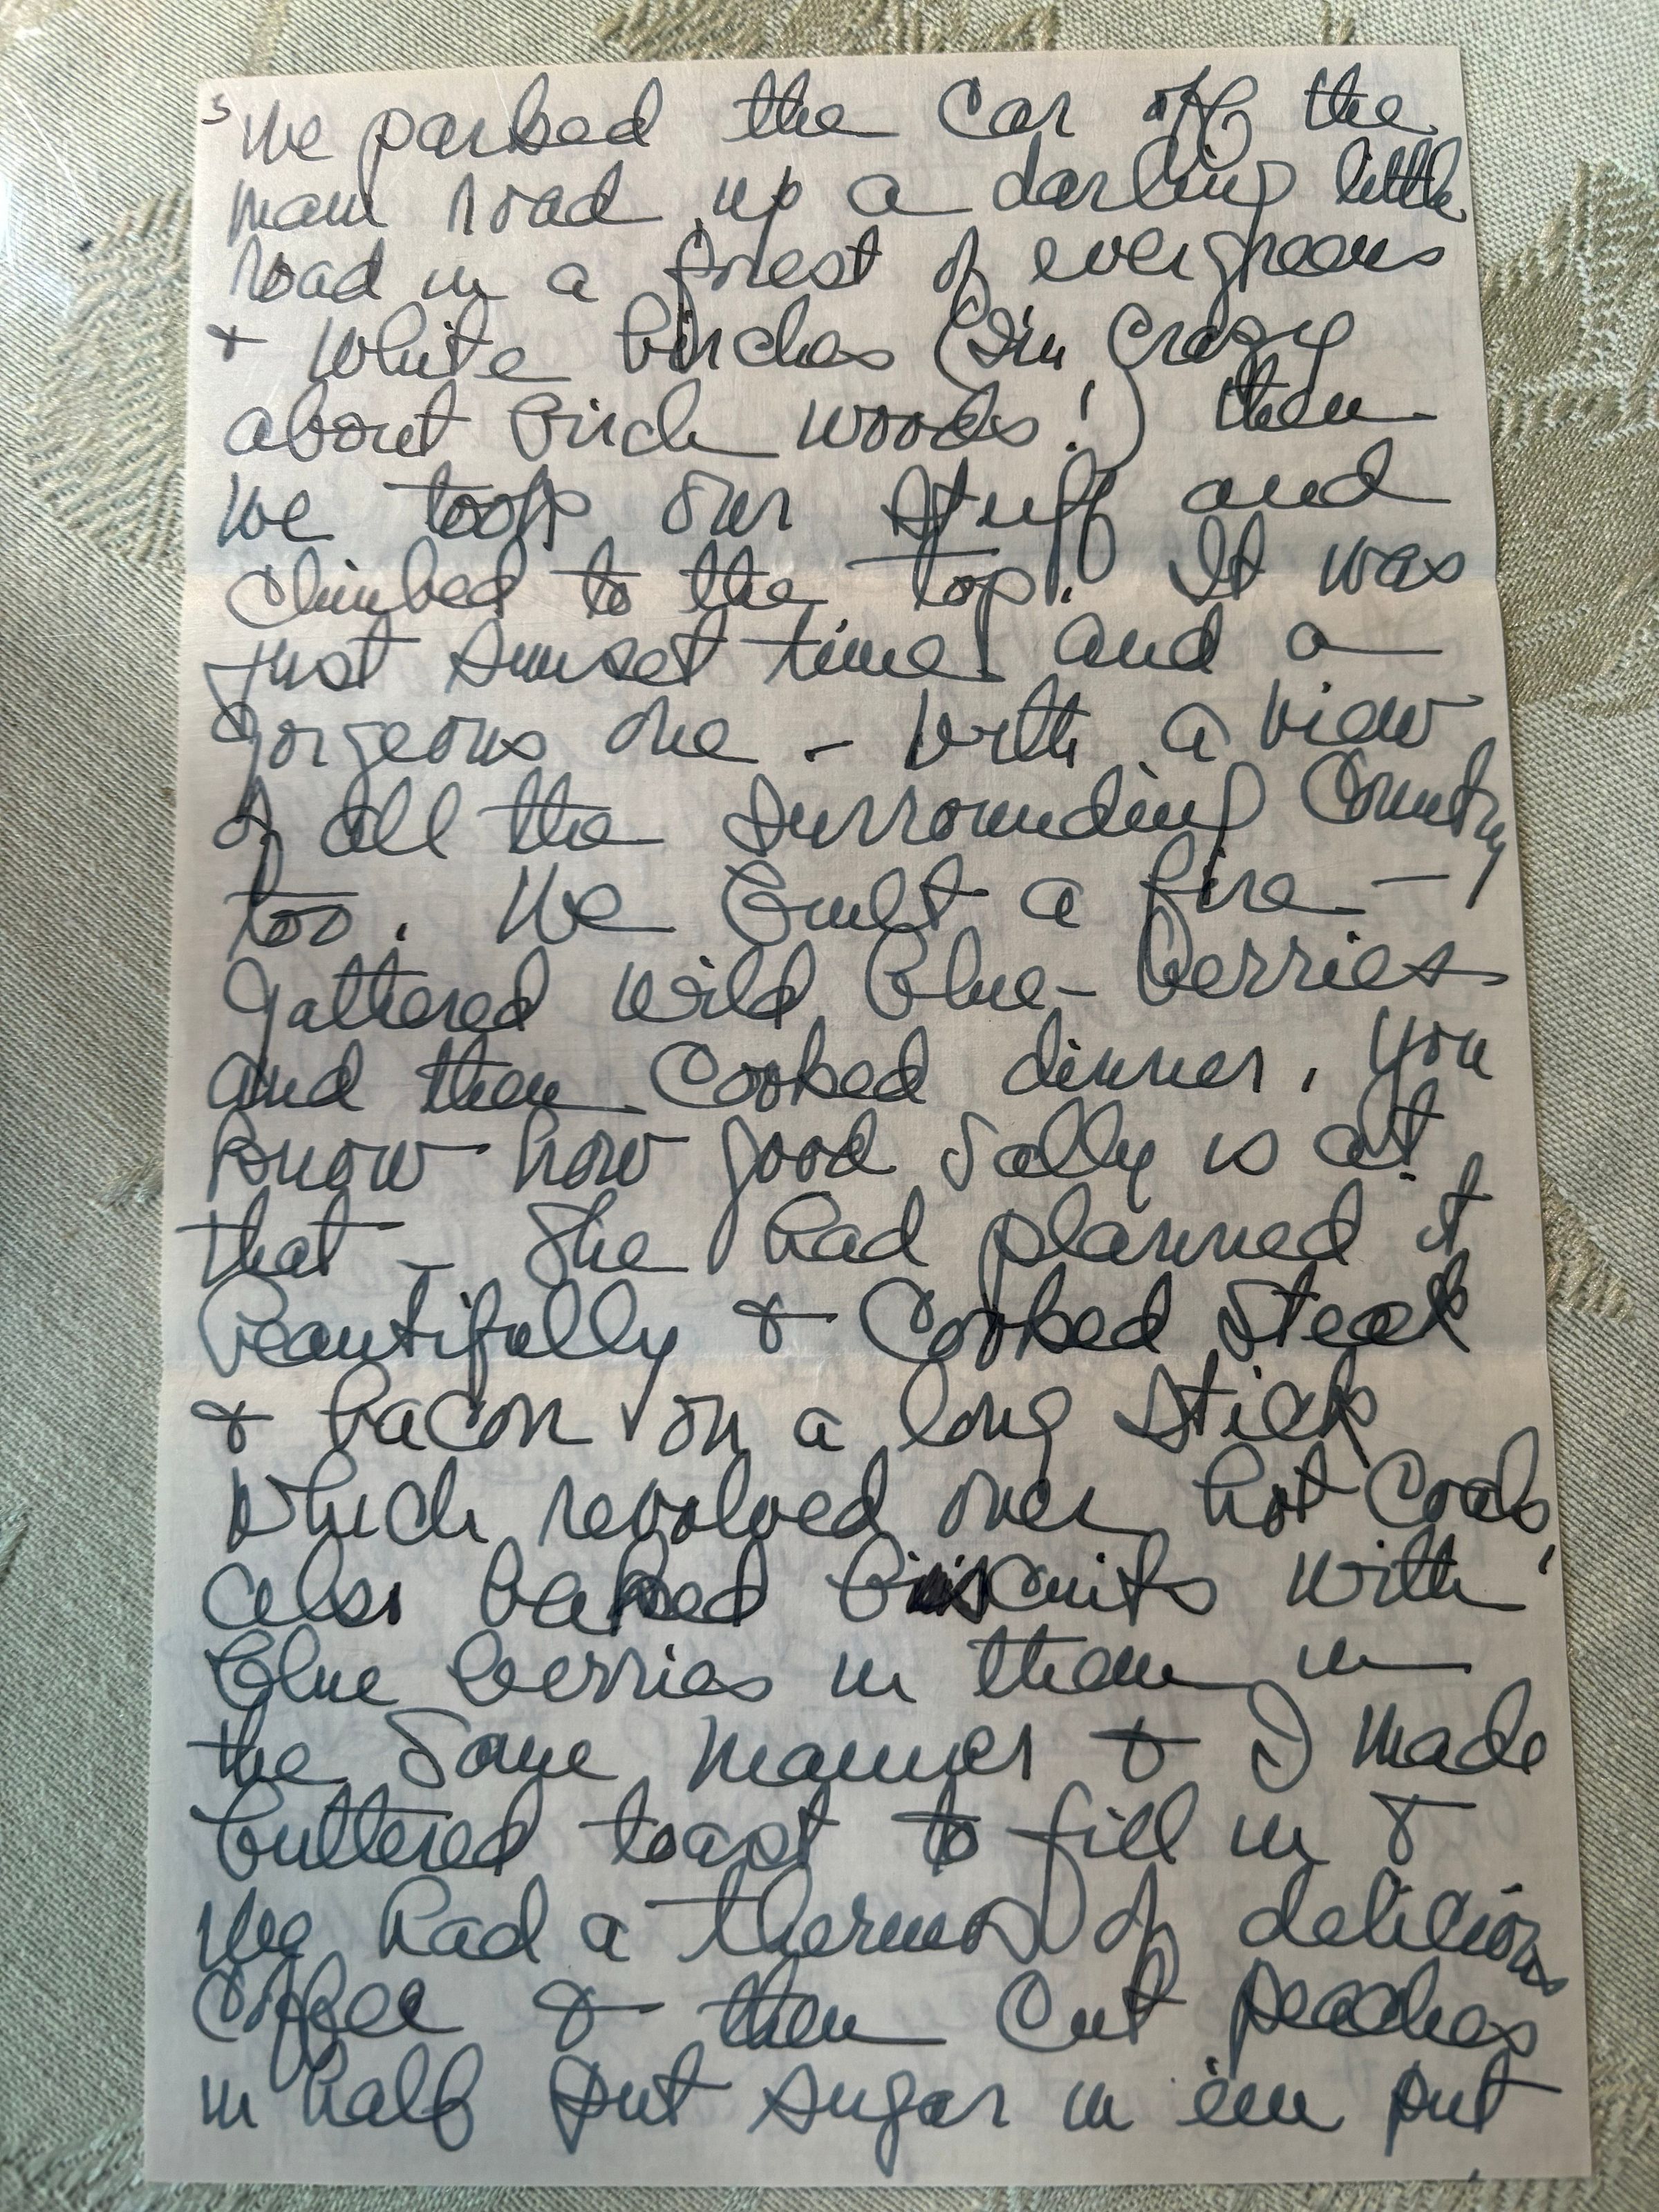 3 We parked the car off the
main road up a darling little
road in a forest of evergreens
& white birches (I'm crazy
about birch woods!) then
we took our stuff and
climbed to the top. It was
just sunset time and a
gorgeous one - with a view
of all the surrounding country
too. We built a fire -
gathered wild blue-berries
and then cooked dinner. You
know how good Sally is at
that - She had planned it
beautifully & cooked steak
& bacon on a long stick
which revolved over hot coals,
also baked biscuits with
blue berries in them in
the same manner & I made
buttered toast to fill in &
we had a thermos of delicious
coffee & then cut peaches
in half put sugar in 'em put